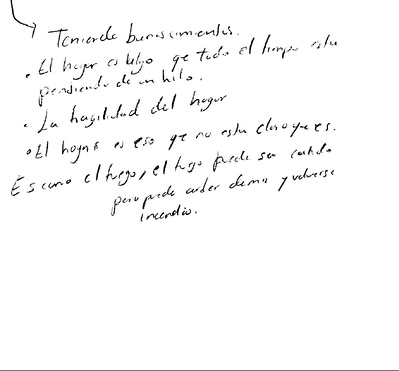 Teniendo buenos cimientos.
• El hogar es algo que todo el tiempo esta
pendiendo de un hilo.
• La fragilidad del hogar
• El hogar es eso que no esta claro que es.
Es como el fuego, el fuego puede ser
pero puede arder demas y volverse
incendio.